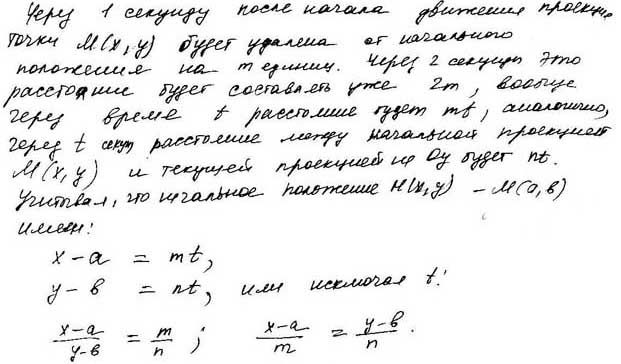 Через 1 секунду после начала движения проекция
точки M(x, y) будет удалена от начального
положения на m единиц. Через 2 секунды это
расстояние будет составлять уже 2m, вообще
через время t расстояние будет mt, аналогично,
через t секунд расстояние между начальной проекцией
M(x, y) и текущей проекцией на Oy будет nt.
Учитывая, что начальное положение M(x, y) – M(a, b)
имеем:
x – a = mt,
y – b = nt, или исключая t:
(x–a)/(y–b) = m/n ; (x–a)/m = (y–b)/n .